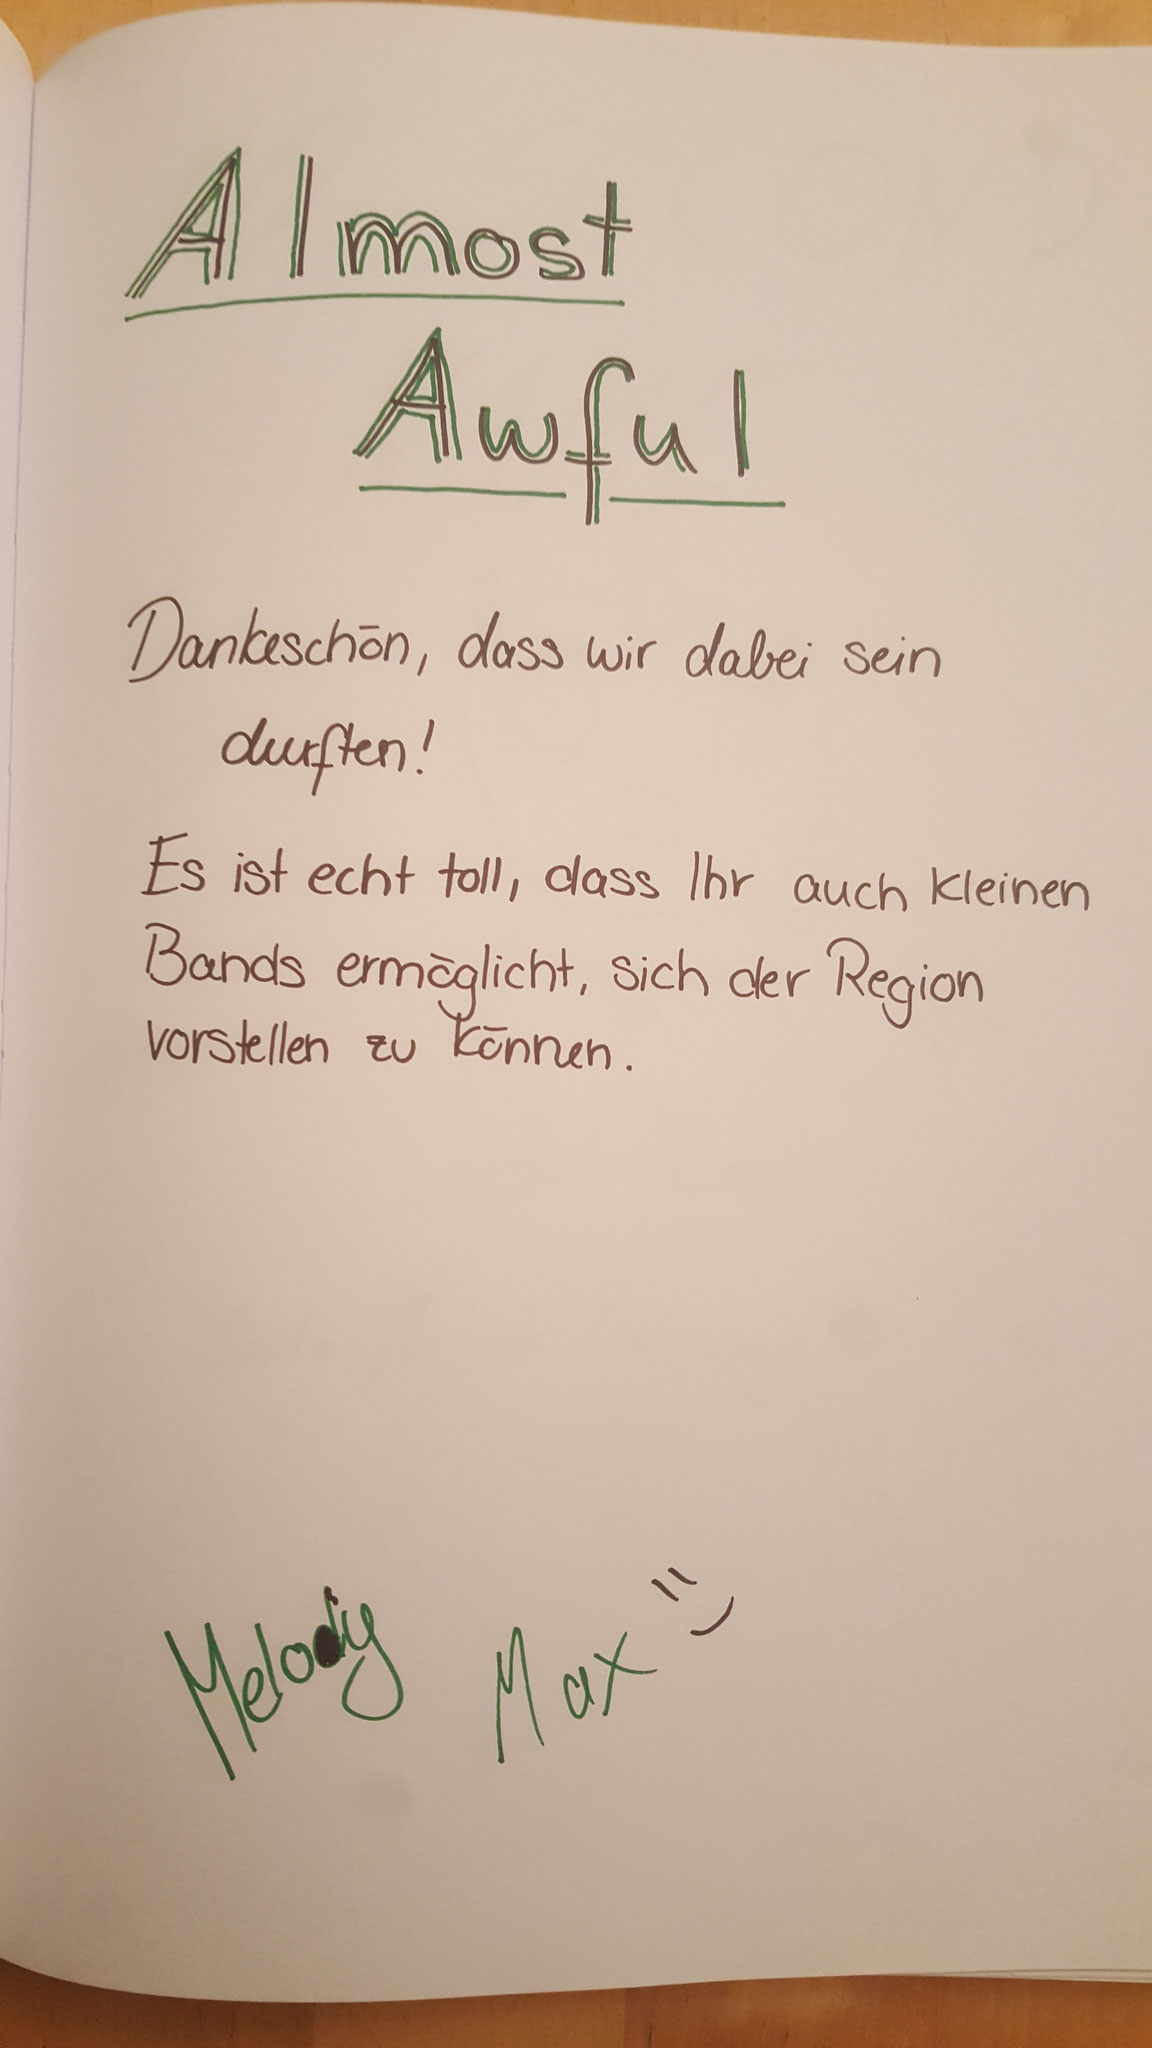 Almost
Awful
Dankeschön, dass wir dabei sein
durften!
Es ist echt toll, dass Ihr auch kleinen
Bands ermöglicht, sich der Region
vorstellen zu können.
Melody Max ")